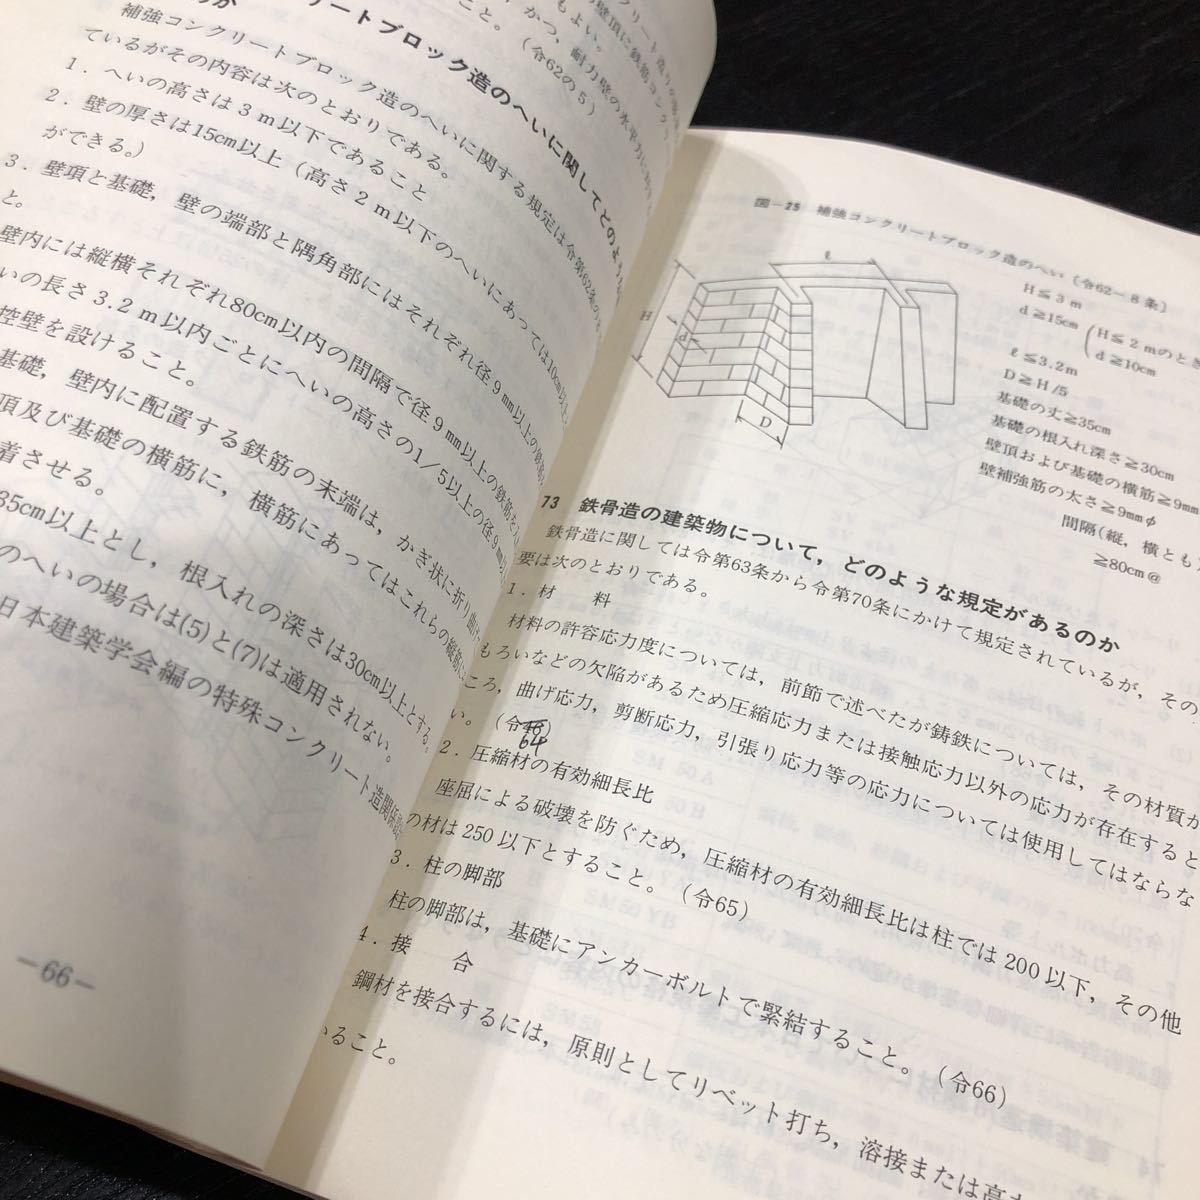 リート造りの
の壁頂に鉄筋コンク
もよい。
かつ，耐力壁の水平力に
こと。（令62の5）
リートブロック造のへいに関してどのような
補強コンクリートブロック造のへいに関する規定は令第62条の
ているがその内容は次のとおりである。
1．へいの高さは3m以下であること
2．壁の厚さは15cm以上（高さ2m以下のへいにあっては10cm以上
ができる。）
3．壁頂と基礎，壁の端部と隅角部にはそれぞれ径9mm以上の鉄筋
と。
壁内には縦横それぞれ80cm以内の間隔で径9mm以上の鉄筋を入
いの長さ3.2m以内ごとにへいの高さの1/5以上の径9mm
控壁を設けること。
基礎，壁内に配置する鉄筋の末端は，かぎ状に折り曲げ
頂及び基礎の横筋に，横筋にあってはこれらの縦筋に
着させる。
35cm以上とし，根入れの深さは30cm以上とする。
のへいの場合は(5)と(7)は適用されない。
日本建築学会編の特殊コンクリート造関係
—66—
図—25　補強コンクリートブロック造のへい（令62—8条）
ℓ
H
d
D
H≦3m
d≧15cm（H≦2mのとき
d≧10cm
ℓ≦3.2m
D≧H/5
基礎の丈≧35cm
基礎の根入れ深さ≧30cm
壁頂および基礎の横筋≧9mm
壁補強筋の太さ≧9mmφ
間隔（縦，横とも）
≧80cm@
73　鉄骨造の建築物について，どのような規定があるのか
鉄骨造に関しては令第63条から令第70条にかけて規定されているが，その
要は次のとおりである。
1．材　料
材料の許容応力度については，前節で述べたが鋳鉄については，その材質が
もろいなどの欠陥があるため圧縮応力または接触応力以外の応力が存在すると
ころ，曲げ応力，剪断応力，引張り応力等の応力については使用してはならな
い。（令46）
64
2．圧縮材の有効細長比
座屈による破壊を防ぐため，圧縮材の有効細長比は柱では200以下，その他
の材は250以下とすること。（令65）
3．柱の脚部
柱の脚部は，基礎にアンカーボルトで緊結すること。（令66）
4．接　合
鋼材を接合するには，原則としてリベット打ち，溶接または高
いること。